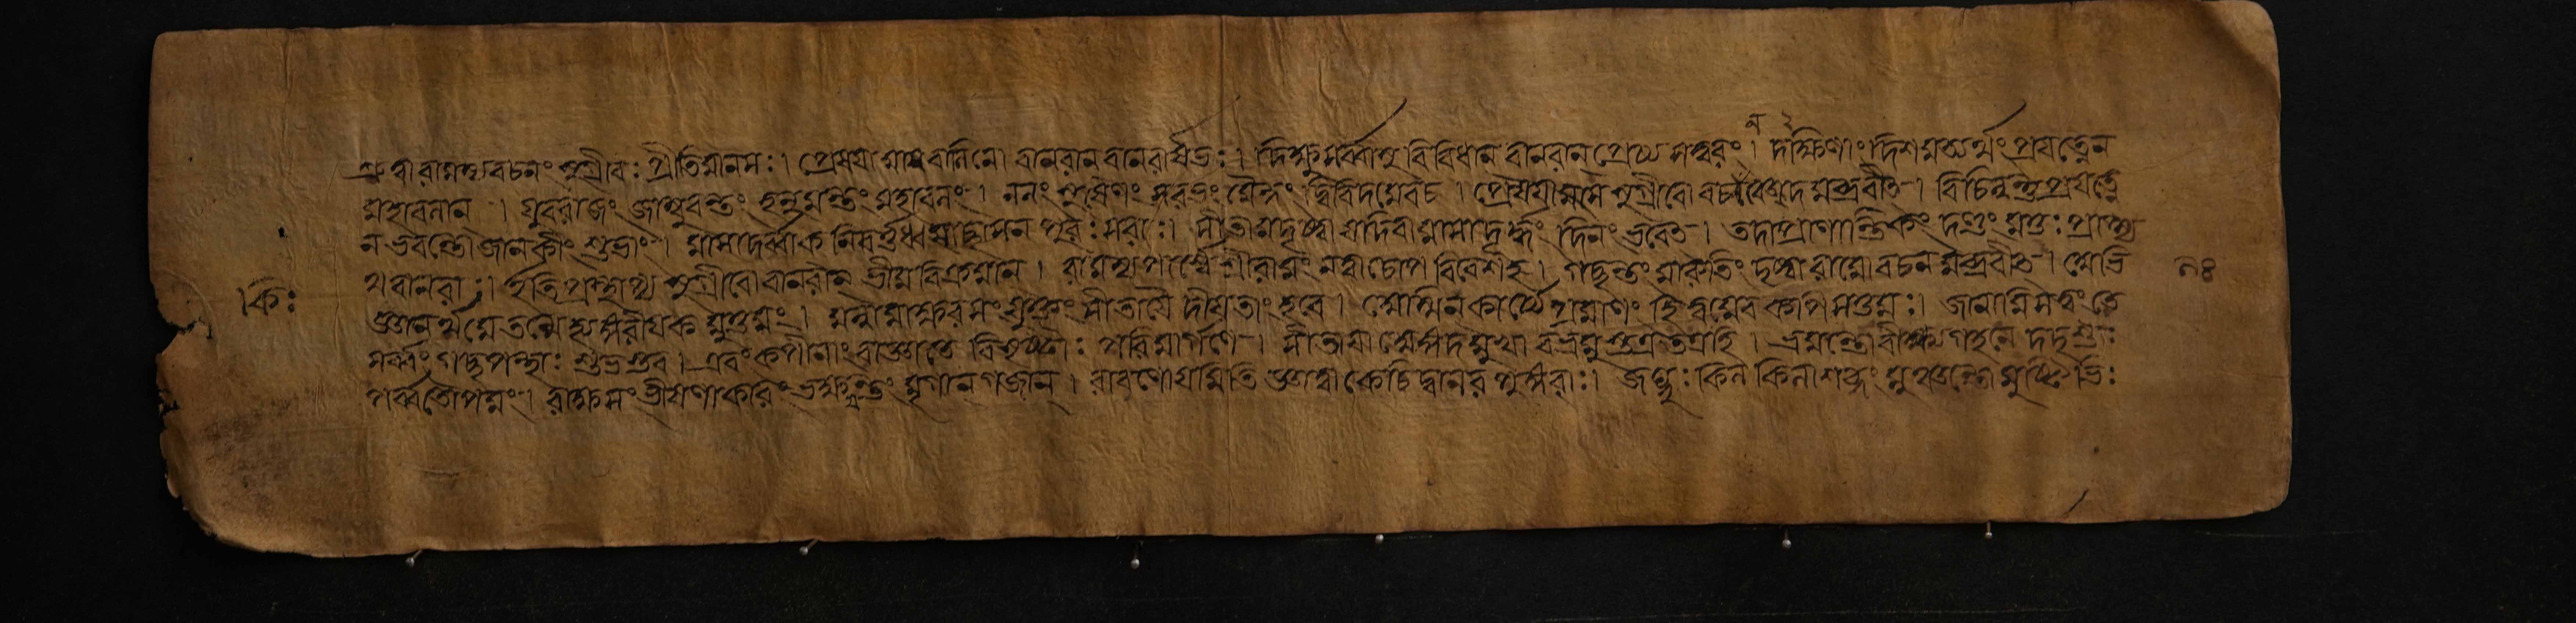 শ্রুত্বা রামস্য বচনং সুগ্রীবঃ প্রীতিমানসঃ। প্রেষয়ামাস বলিনো বানরান বানরার্ষভঃ। দিক্ষু সর্ব্বাসু বিবিধান বানরান প্রেষ্য সত্বরং। দক্ষিণাং দিশমত্যর্থং প্রযত্নেন
মহাবলান্ । যুবরাজং জাম্বুবন্তং হনুমন্তং মহাবলং। নলং সুষেণং সরভং মৈন্দং দ্বিবিদমেবচ । প্রেষয়ামাস সুগ্রীবো বচনঞ্চেদমব্রবীৎ । বিচিন্বন্তু প্রযত্নে
ন ভবন্তো জানকীং শুভাং। মাসাদর্ব্বাক নিবর্ত্তধ্বং মচ্ছাসন পুরঃসরাঃ। সীতামদৃষ্ট্বা যদি বা মাসাদূর্দ্ধং দিনং ভবেৎ । তদা প্রাণান্তিকং দণ্ডং মত্তঃ প্রাপ্স্য
থ বানরাঃ। ইতি প্রস্থাপ্য সুগ্রীবো বানরান ভীমবিক্রমান। রামস্য পার্শ্বে শ্রীরামং নত্বা চোপবিবেশহ। গচ্ছন্তং মারুতিং দৃষ্ট্বা রামো বচনমব্রবীৎ । মেভি
জ্ঞানর্থমেতন্মে হ্যঙ্গুরীয়কমুত্তমং। মন্নামাক্ষরসংযুক্তং সীতায়ৈ দীয়তাং হবে। অস্মিন কার্য্যে প্রমাণং হি ত্বমেব কপিসত্তমঃ। জানামি সত্ত্বং তে
সর্ব্বং গচ্ছ পন্থাঃ শুভস্তব। এবং কপীনাং রাজ্ঞাতে বিসৃষ্টাঃ পরিমার্গণে। সীতায়া অঙ্গদমুখা বভ্রমুস্তত্রতত্রহি। ভ্রমন্তো বিন্ধ্যগহনে দদৃশুঃ
পর্ব্বতোপমং। রাক্ষসং ভীষণাকারং ভক্ষন্তং মৃগান গজান্ । রাবণোয়মিতি জ্ঞাত্বা কেচিদ্বানর পুঙ্গবাঃ। জঘ্নুঃ কিল কিলাশব্দং মুঞ্চন্তো মুষ্টিভিঃ
কিঃ